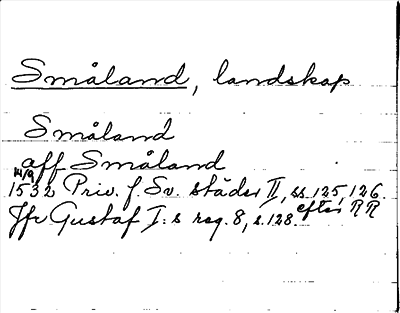 Småland, landskap
Småland
aff Småland
14/9
1532 Priv. f. Sv. städer II, ss. 125, 126.
efter RR
Jfr Gustaf I:s reg. 8, s. 128.